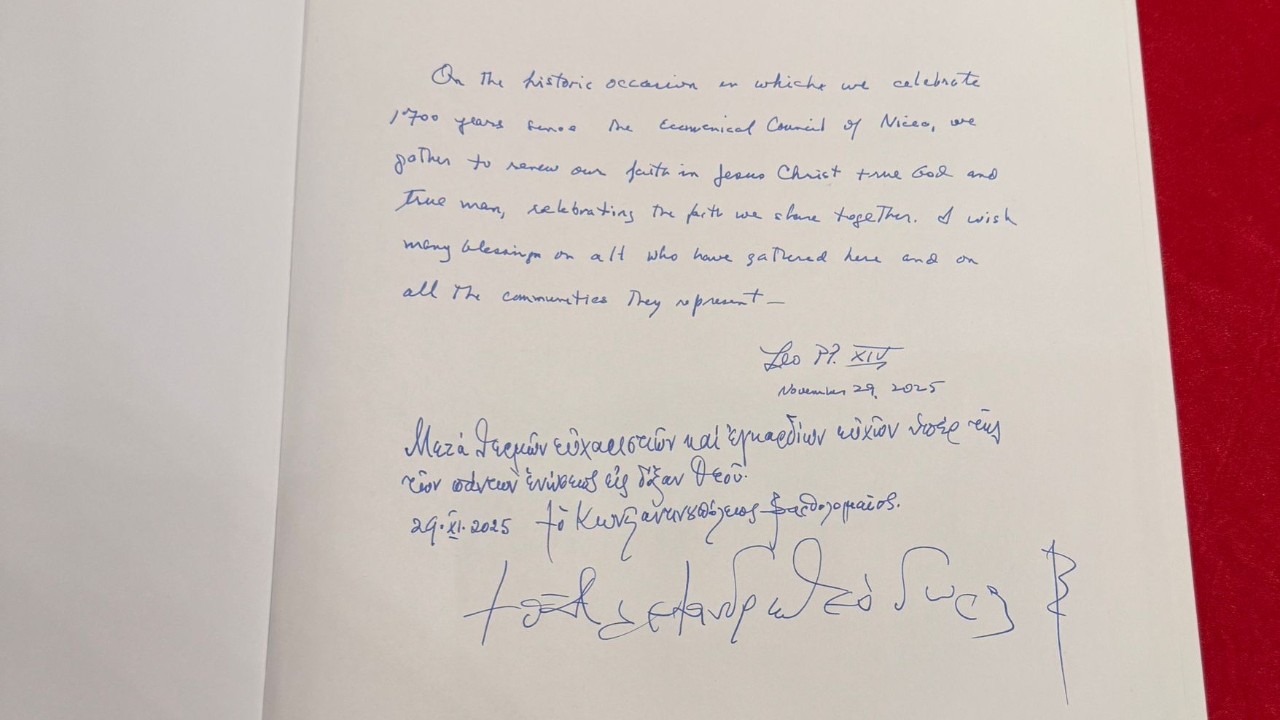 On the historic occasion in which we celebrate
1700 years since the Ecumenical Council of Nicea, we
gather to renew our faith in Jesus Christ true God and
true man, celebrating the faith we share together. I wish
many blessings on all who have gathered here and on
all the communities they represent—
Leo PP. XIV
November 29, 2025
Μετά θερμῶν εὐχαριστιῶν καί ἐγκαρδίων εὐχῶν ὑπέρ τῆς
τῶν πάντων ἑνώσεως εἰς δόξαν Θεοῦ.
29.XI.2025 † ὁ Κωνσταντινουπόλεως Βαρθολομαῖος.
† ὁ Ἀλεξανδρείας Θεόδωρος Β